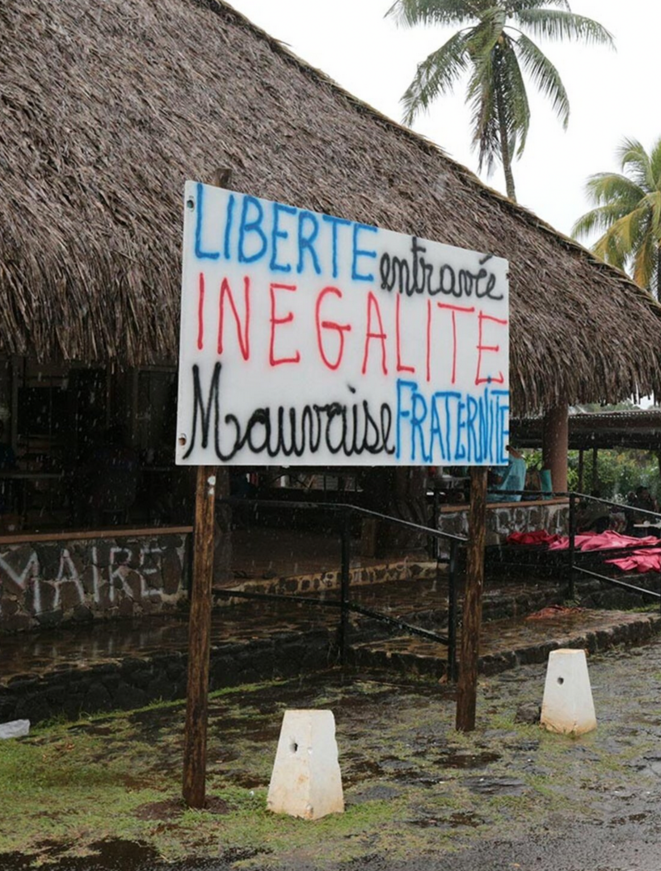 LIBERTE entravée
INEGALITE
Mauvaise FRATERNITE
MAIRE